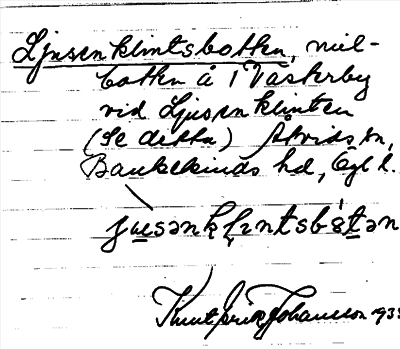 Ljusenklintsbotten, mål-
botten å 1 Västerby
vid Ljusenklinten
(Se detta) Åtvids sn,
Bankekinds hd, Ögl l.
jusənkḷıntsbòtən
Knut Erik Johansson 193